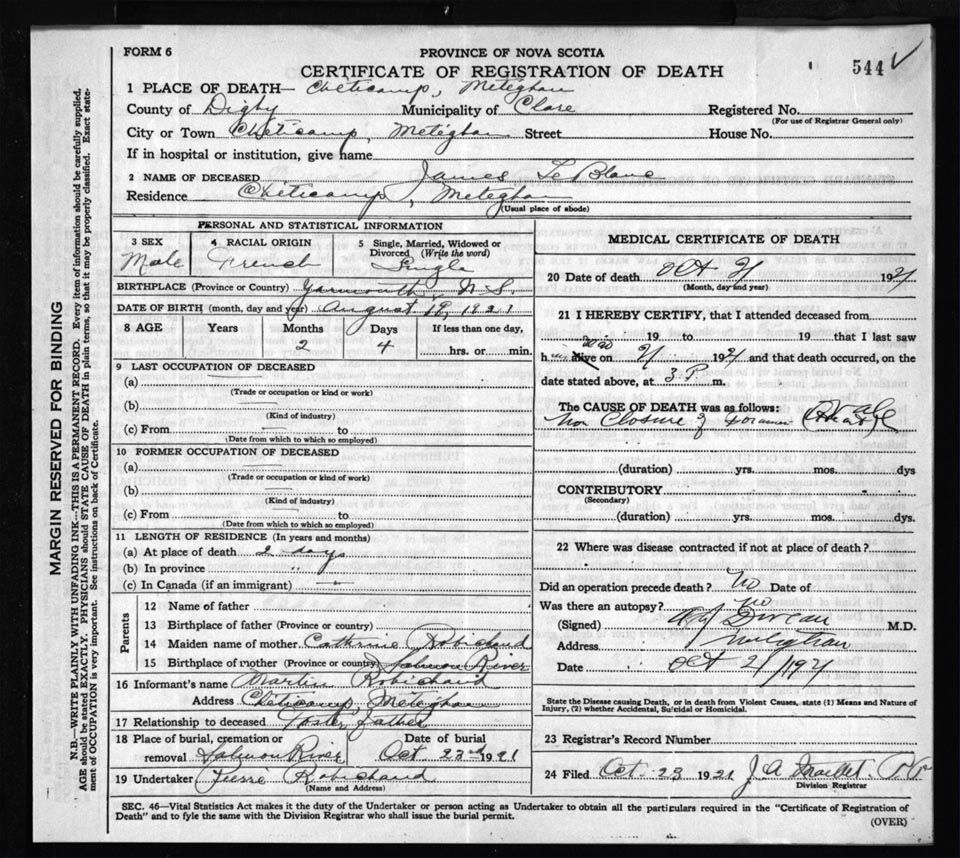 FORM 6
PROVINCE OF NOVA SCOTIA
CERTIFICATE OF REGISTRATION OF DEATH
544
1 PLACE OF DEATH— Chéticamp, Meteghan
County of Digby Municipality of Clare Registered No.
(For use of Registrar General only)
City or Town Chéticamp, Meteghan Street House No.
If in hospital or institution, give name
2 NAME OF DECEASED James Le Blanc
Residence Chéticamp, Meteghan
(Usual place of abode)
PERSONAL AND STATISTICAL INFORMATION
3 SEX 4 RACIAL ORIGIN 5 Single, Married, Widowed or Divorced (Write the word)
Male French Single
BIRTHPLACE (Province or Country) Yarmouth N.S.
DATE OF BIRTH (month, day and year) August 19, 1921
8 AGE Years Months Days If less than one day,
2 4 hrs. or min.
9 LAST OCCUPATION OF DECEASED
(a)
(Trade or occupation or kind or work)
(b)
(Kind of industry)
(c) From to
(Date from which to which so employed)
10 FORMER OCCUPATION OF DECEASED
(a)
(Trade or occupation or kind of work)
(b)
(Kind of industry)
(c) From to
(Date from which to which so employed)
11 LENGTH OF RESIDENCE (In years and months)
(a) At place of death 2 days
(b) In province "
(c) In Canada (if an immigrant)
Parents
12 Name of father
13 Birthplace of father (Province or country)
14 Maiden name of mother Cathrine Robichaud
15 Birthplace of mother (Province or country) Salmon River
16 Informant's name Martin Robichaud
Address Chéticamp, Méteghan
17 Relationship to deceased Foster father
18 Place of burial, cremation or removal Salmon River Date of burial Oct 23rd 1921
19 Undertaker Robichaud
(Name and Address)
MEDICAL CERTIFICATE OF DEATH
20 Date of death Oct 21 1921
(Month, day and year)
21 I HEREBY CERTIFY, that I attended deceased from
19 to 19 that I last saw
h alive on 21 1921 and that death occurred, on the
date stated above, at 3 P. m.
The CAUSE OF DEATH was as follows:
Non Closure of Foramen Ovale
(duration) yrs. mos. dys
CONTRIBUTORY
(Secondary)
(duration) yrs. mos. dys.
22 Where was disease contracted if not at place of death?
Did an operation precede death? No Date of
Was there an autopsy? no
(Signed) M.D.
Address Meteghan
Date Oct 21/1921
State the Disease causing Death, or in death from Violent Causes, state (1) Means and Nature of
Injury, (2) whether Accidental, Suicidal or Homicidal.
23 Registrar's Record Number
24 Filed Oct. 23 1921 J. A.
Division Registrar
SEC. 46—Vital Statistics Act makes it the duty of the Undertaker or person acting as Undertaker to obtain all the particulars required in the "Certificate of Registration of
Death" and to fyle the same with the Division Registrar who shall issue the burial permit.
(OVER)
MARGIN RESERVED FOR BINDING
N.B.—WRITE PLAINLY WITH UNFADING INK—THIS IS A PERMANENT RECORD. Every item of information should be carefully supplied.
AGE should be stated EXACTLY. PHYSICIANS should STATE CAUSE OF DEATH in plain terms, so that it may be properly classified. Exact state-
ment of OCCUPATION is very important. See instructions on back of Certificate.